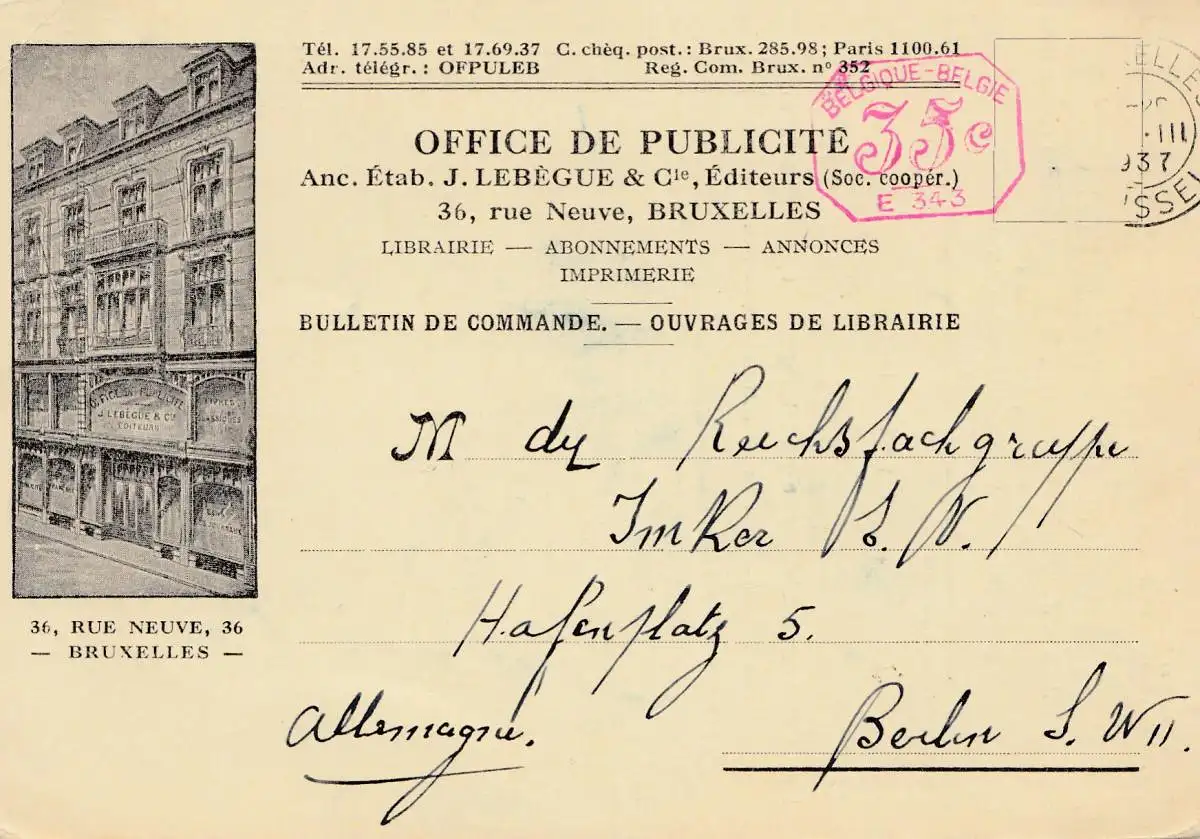 Tél. 17.55.85 et 17.69.37 C. chèq. post.: Brux. 285.98; Paris 1100.61
Adr. télégr.: OFPULEB Reg. Com. Brux. nº 352
BELGIQUE-BELGIE
35c
E 343
III
1937
OFFICE DE PUBLICITÉ
Anc. Étab. J. LEBÈGUE & Cie, Éditeurs (Soc. coopér.)
36, rue Neuve, BRUXELLES
LIBRAIRIE — ABONNEMENTS — ANNONCES
IMPRIMERIE
BULLETIN DE COMMANDE. — OUVRAGES DE LIBRAIRIE
OFFICE DE PUBLICITÉ
J. LEBÈGUE & Cie
EDITEURS
36, RUE NEUVE, 36
— BRUXELLES —
M der Reichsfachgruppe
Imker E. V.
Hafenplatz 5.
Allemagne.
Berlin S. W 11.